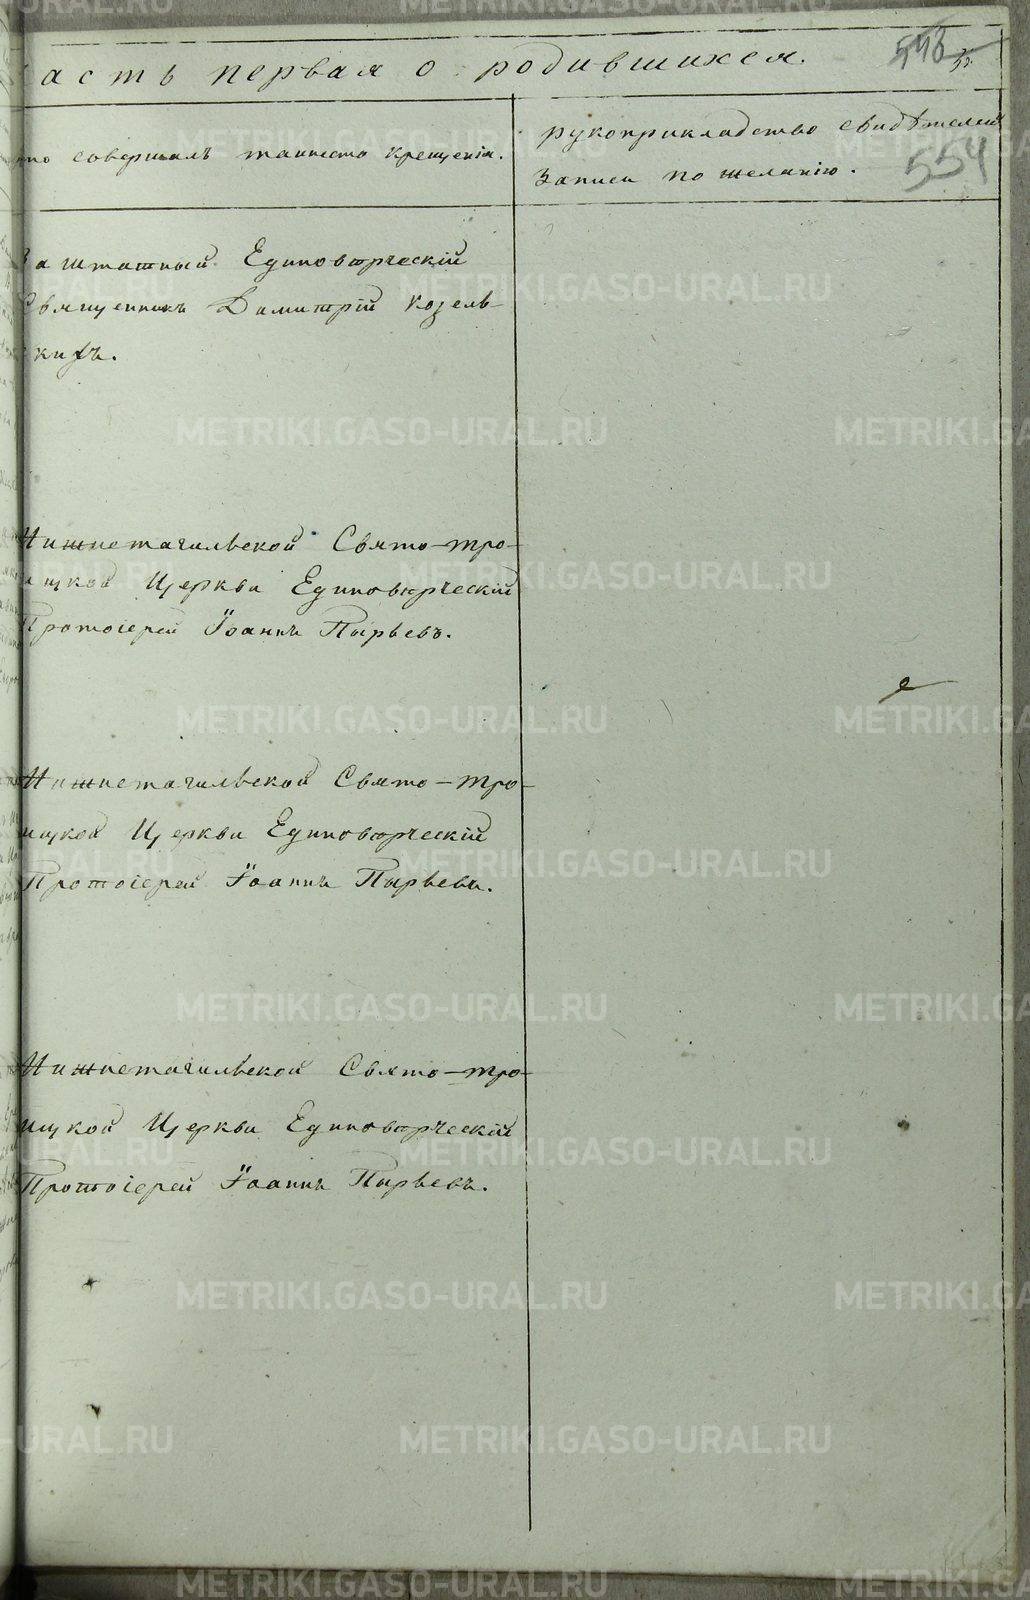 асть первая о родившихся.
548
554
то совершалъ таинство крещенія.
рукоприкладство свидѣтелей
записи по желанію.
Заштатный Единовѣрческій
Священникъ Димитрій Козель-
скихъ.
Нижнетагильской Свято-тро-
ицкой Церкви Единовѣрческій
Протоіерей Іоаннъ Пырьевъ.
Нижнетагильской Свято-тро-
ицкой Церкви Единовѣрческій
Протоіерей Іоаннъ Пырьевъ.
Нижнетагильской Свято-тро-
ицкой Церкви Единовѣрческій
Протоіерей Іоаннъ Пырьевъ.
METRIKI.GASO-URAL.RU